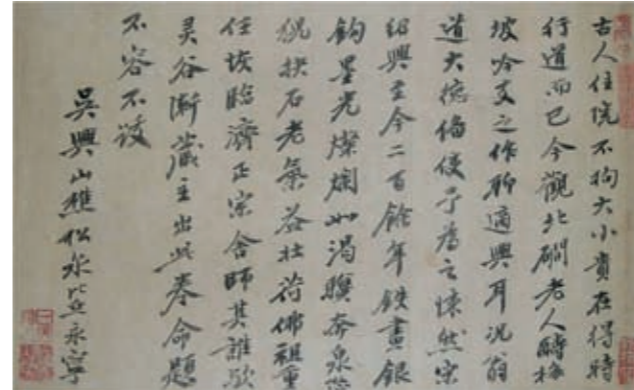 古人住院不拘大小貴在得時
行道而已今觀北磵老人
坡吟友之作聊適興耳況翁
道大德俻使予為之悚然宗
紹興至今二百餘年鐵畫銀
鈎墨光燦爛如渴驥奔泉
猊抉石老氣益壯荷佛祖重
任扶臨濟正宗舍師其誰歟
灵谷漸藏主出此卷命題
不容不跋
吳興山樵松泉比丘永寧